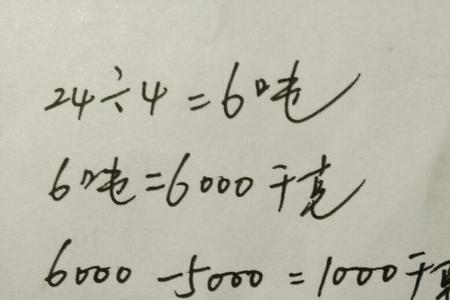 24÷4=6吨
6吨=6000千克
6000-5000=1000千克